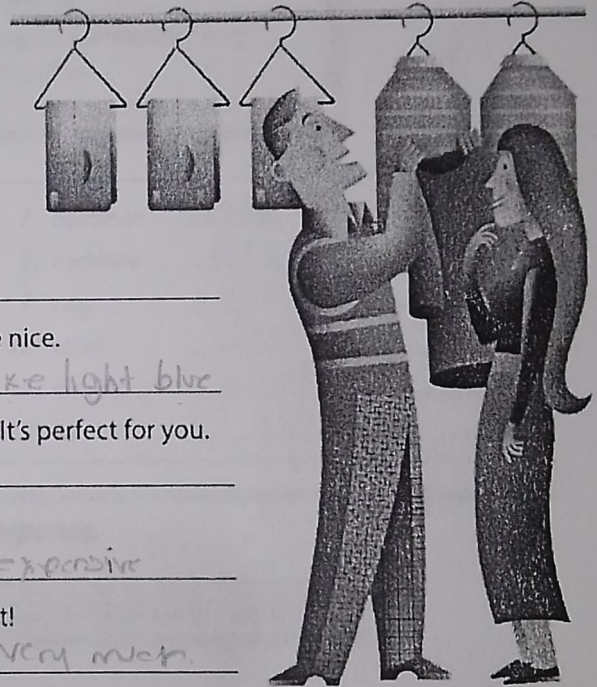 e nice.
ke light blue
It's perfect for you.
expensive
t!
very much.